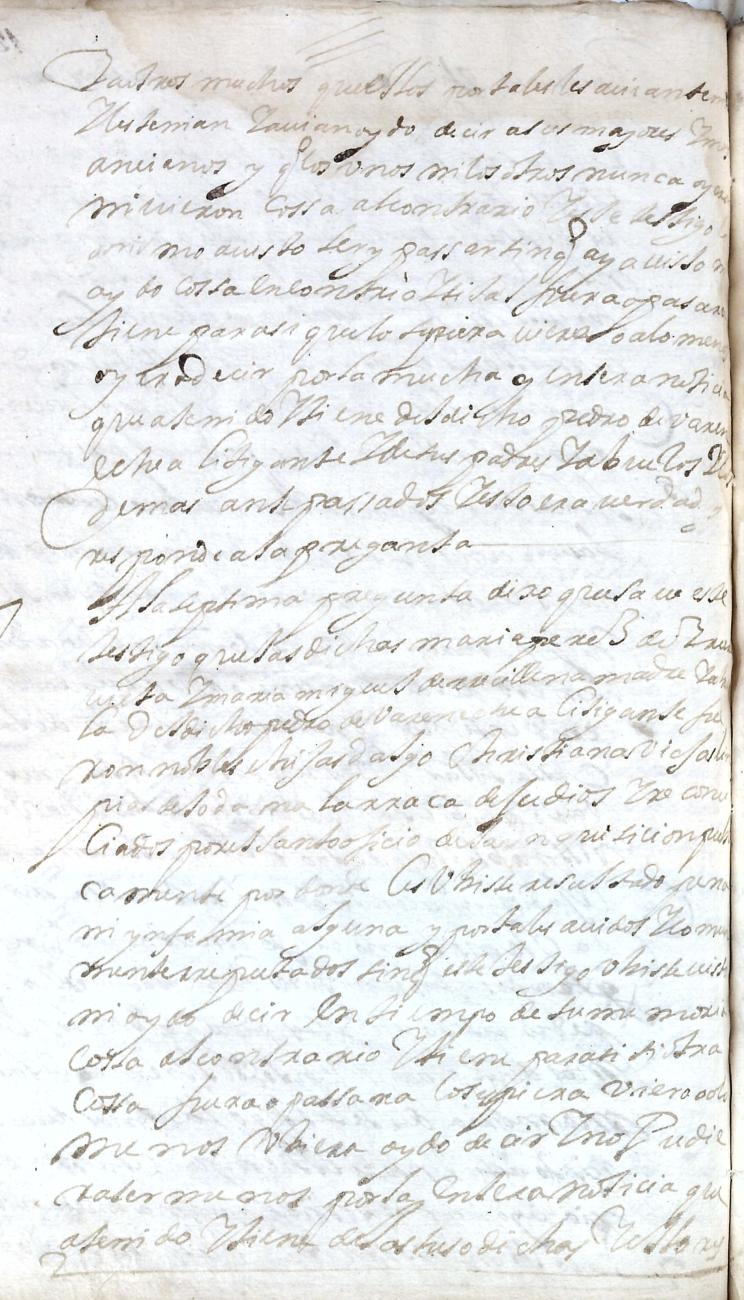 y a otros muchos que ellos por tales les avian teni
y les tenian y avian oydo decir a sus mayores y mas
ancianos y q los unos ni los otros nunca oyeron
ni vieron cossa al contrario y este testigo
asi mismo a visto ser y passar sin q aya visto ni
oydo cossa en contrario y si tal fuera o pasara
tiene para si que lo supiera viera o a lo menos
oyera decir por la mucha y entera noticia
que a tenido y tiene del dicho pedro de varen
echea litigante y de sus padres y abuelos y
demas antepassados y esto era verdad y
responde a la pregunta
A la septima pregunta dixo que save este
testigo que las dichas maria perez de
y maria miguel de madre y abue
la del dicho pedro de varenechea litigante fue
ron nobles hijasdalgo christianas viejas lim
pias de toda mala rraca de judios y re conci
liados por el santo oficio de la ynquisicion publi
camente por donde les ubiese resultado pena
ni ynfamia alguna y por tales avidos y comun
mente rreputados sin q este testigo ubiese visto
ni oydo decir en tiempo de su memoria
cossa al contrario y tiene para si si otra
cossa fuera o passara lo supiera viera o a lo
menos ubiera oydo decir y no pudie
ra ser menos por la entera noticia que
a tenido y tiene de las susodichas y esto res